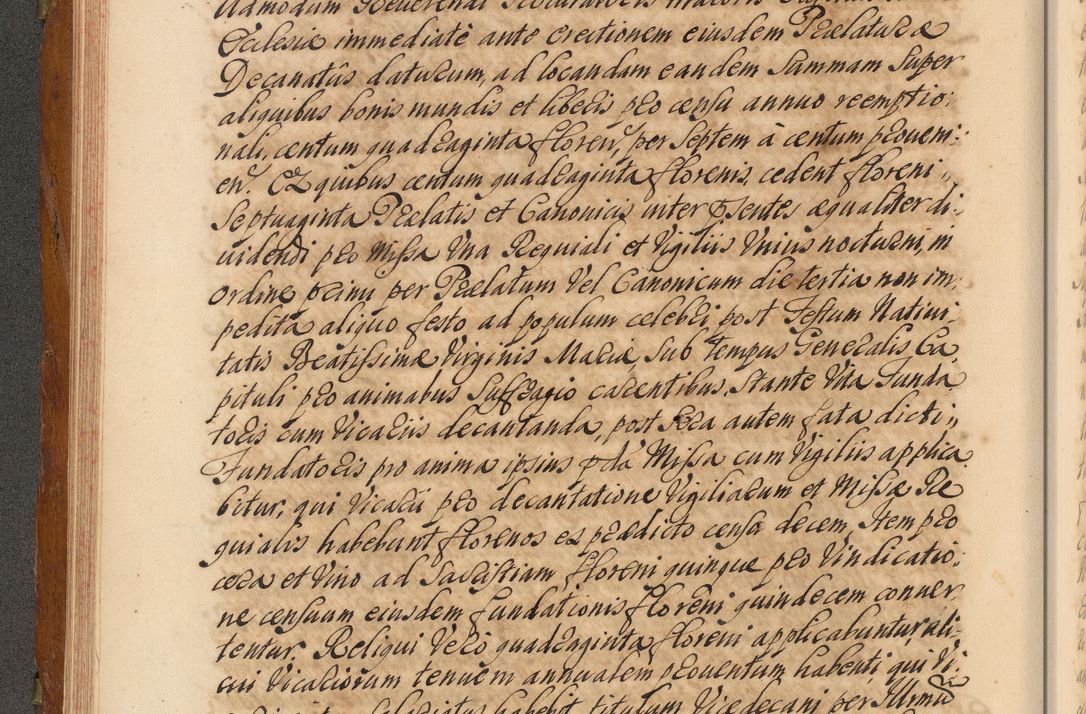 Admodum Reverendi
Ecclesiæ immediatè ante erectionem eiusdem Prælatura
Decanatûs daturum, ad locandam eandem Summam Super
aliquibus bonis mundis et liberis pro censu annuo reemptio:
nali, centum quadraginta floren, per Septem à centum proveni:
en. Ex quibus centum quadraginta florenis, cedent floreni
Septuaginta Prælatis et Canonicis inter præsentes æqualiter di:
videndi pro Missa Una Requiali et Vigiliis Unius nocturni, in
ordine primi per Prælatum Vel Canonicum die tertia non im:
pedita aliquo festo ad populum celebri, post Festum Nativi
tatis Beatissimæ Virginis Mariæ, Sub tempus Generalis Ca,
pituli pro animabus Suffragio carentibus, Stante Vita Funda,
toris cum Vicariis decantanda, post Sera autem fata dicti
Fundatoris pro anima ipsius pda Missa cum Vigiliis applica
bitur, qui Vicarii pro decantatione Vigiliarum et Missæ Re
quialis habebunt florenos ex prædicto censu decem, Item pro
cera et Vino ad Sacristiam floreni quinque pro Vindicatio:
ne censuum eiusdem fundationis floreni quindecem conver
tentur. Reliqui Vero quadraginta floreni applicabuntur ali:
cui Vicariorum tenuem annualem proventum habenti, qui Vi:
habebit titulum Vicedecani per Illrmũ